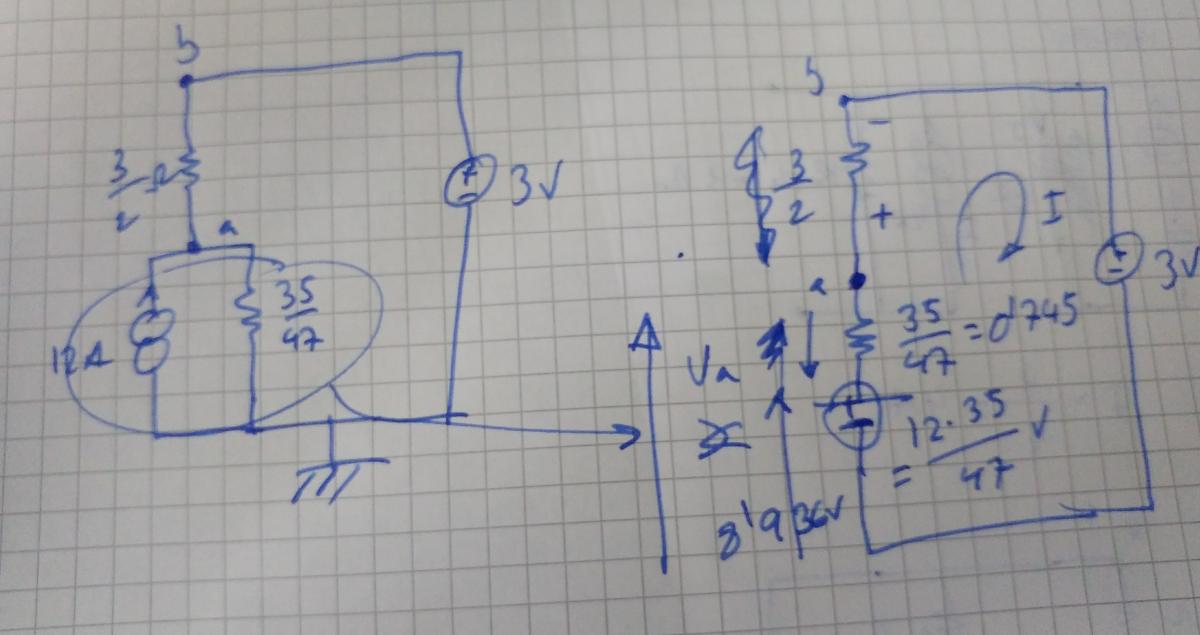 b
3/2 Ω
a
12A
35/47
+
-
3V
b
-
3/2
+
I
+
-
3V
a
35/47 = 0'745
Va
+
-
= 12·35/47 V
8'936V